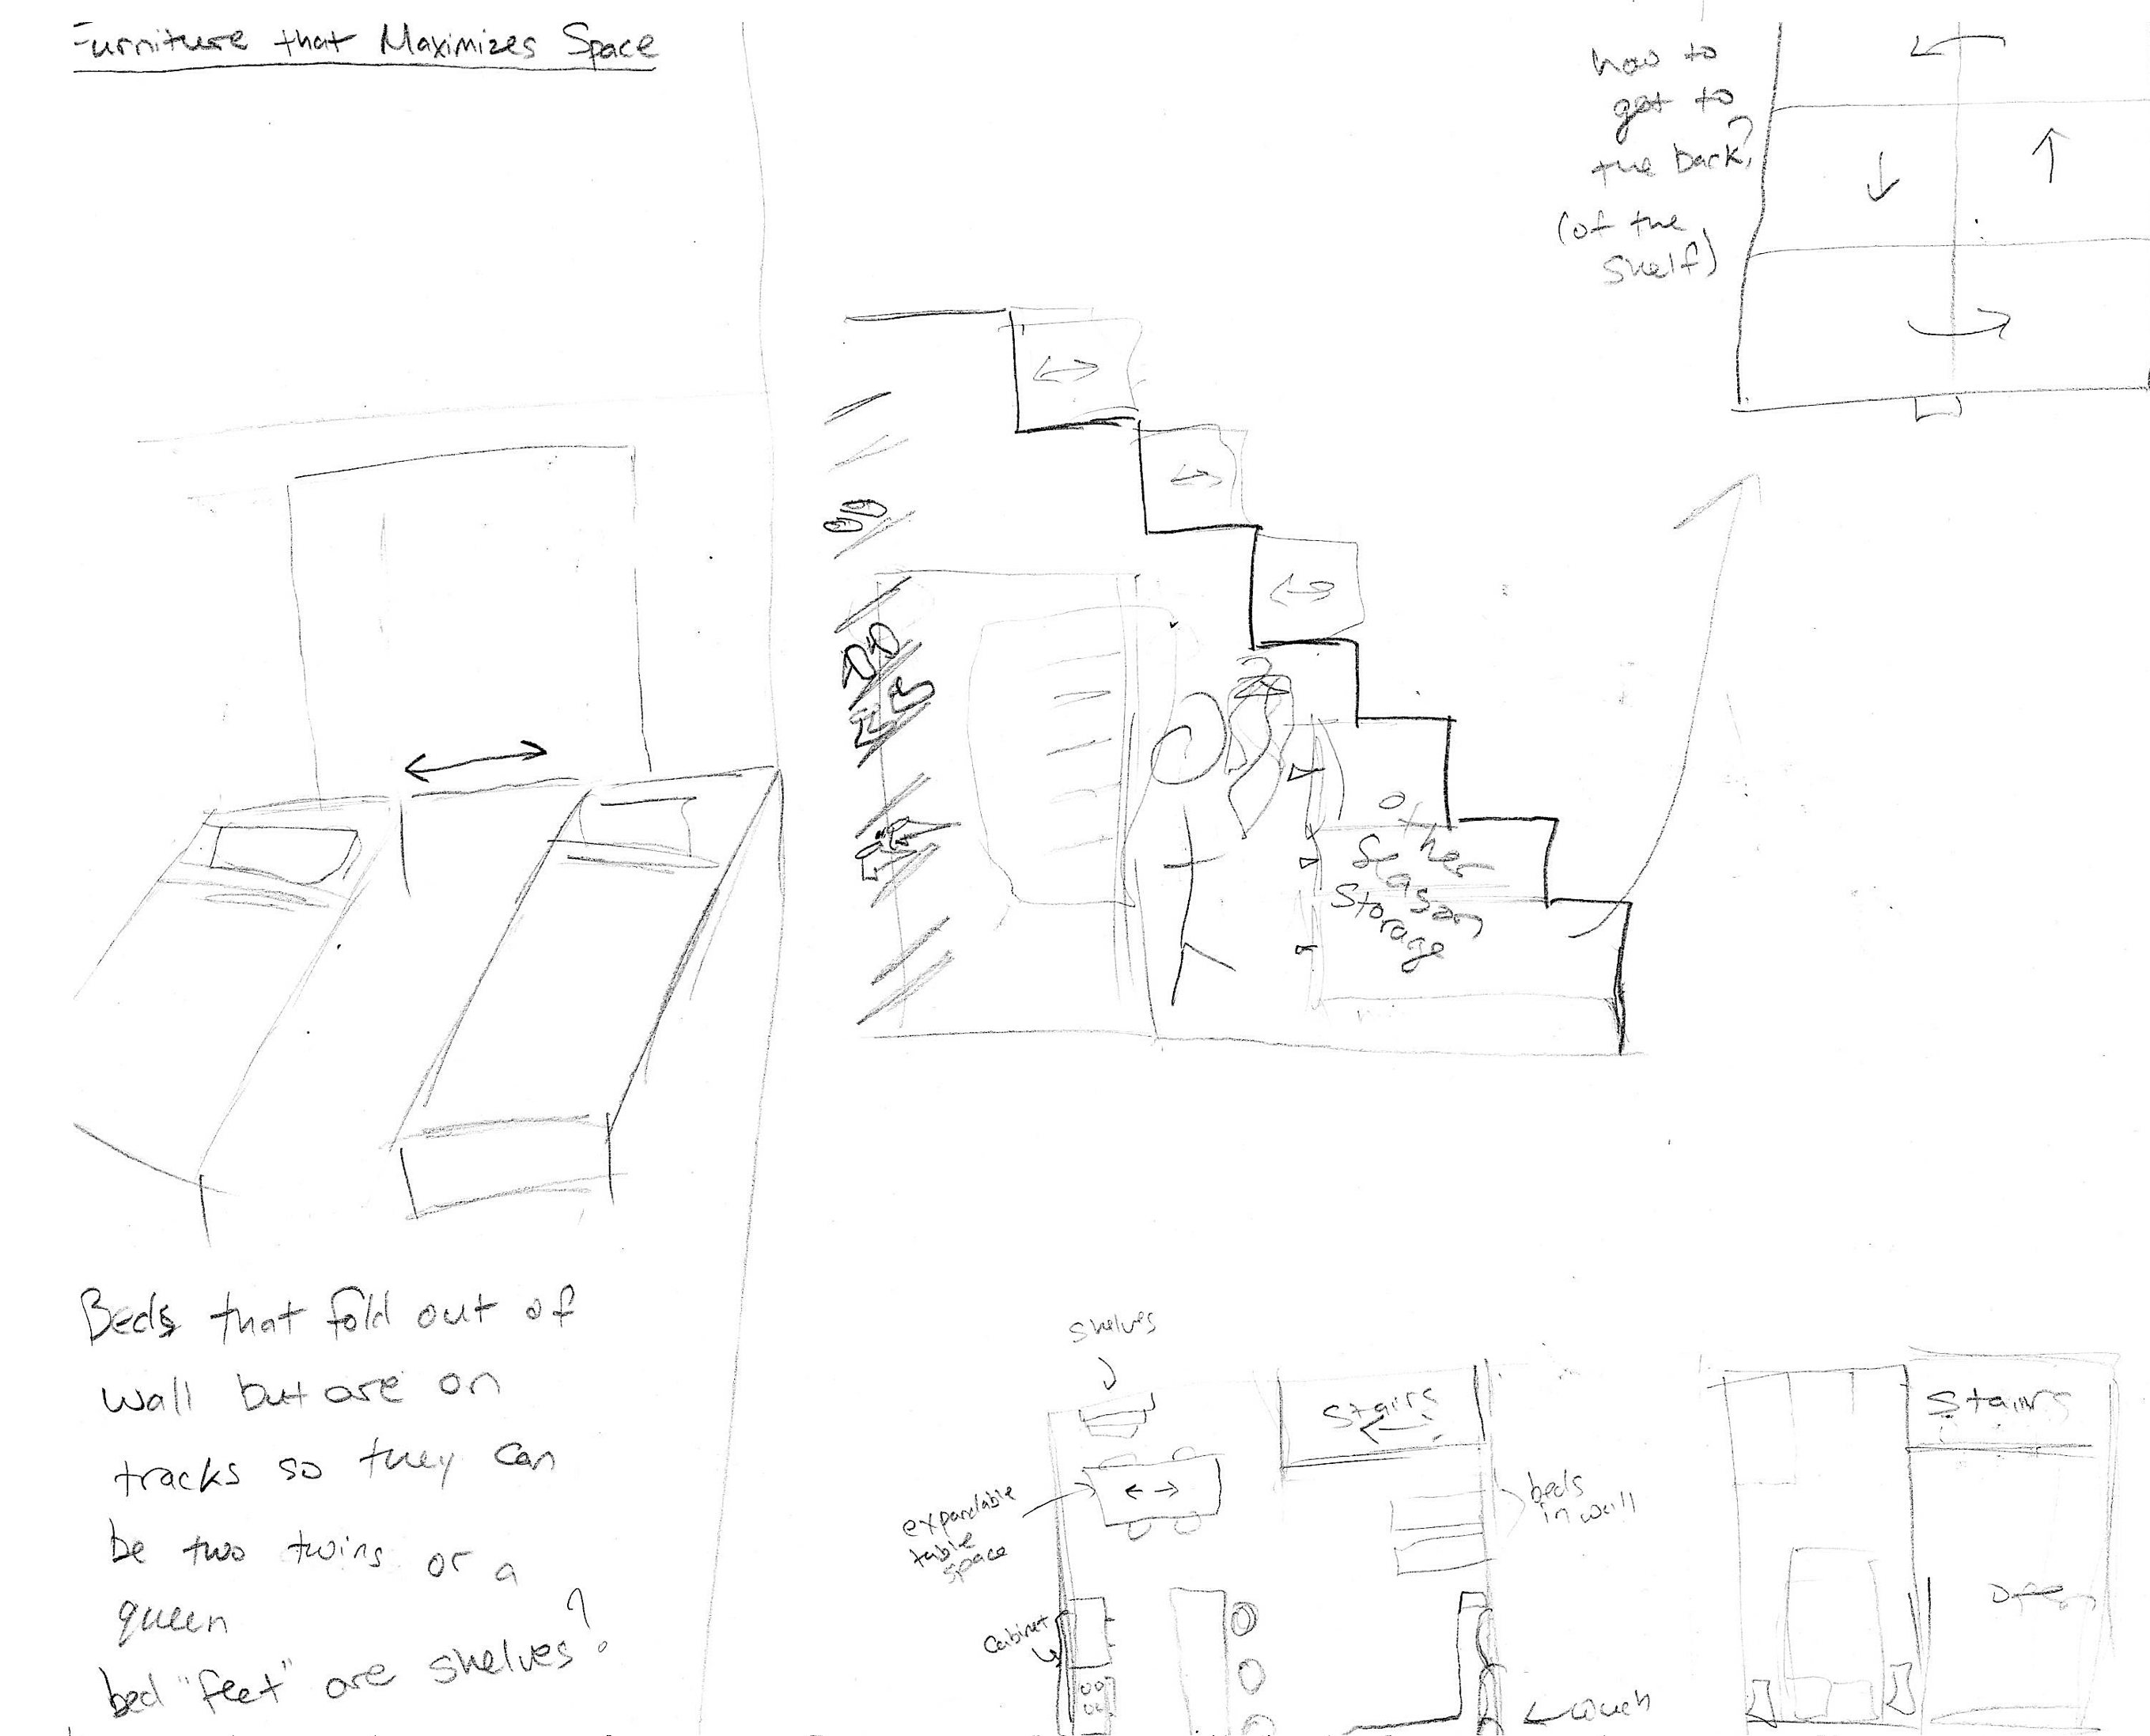 Furniture that Maximizes Space
how to
get to
the back?
(of the
shelf)
other
Season
Storage
Beds that fold out of
wall but are on
tracks so they can
be two twins or a
queen
bed "feet" are shelves?
shelves
Stairs
expandable
table
space
beds
in wall
Cabinet
couch
Stairs
open